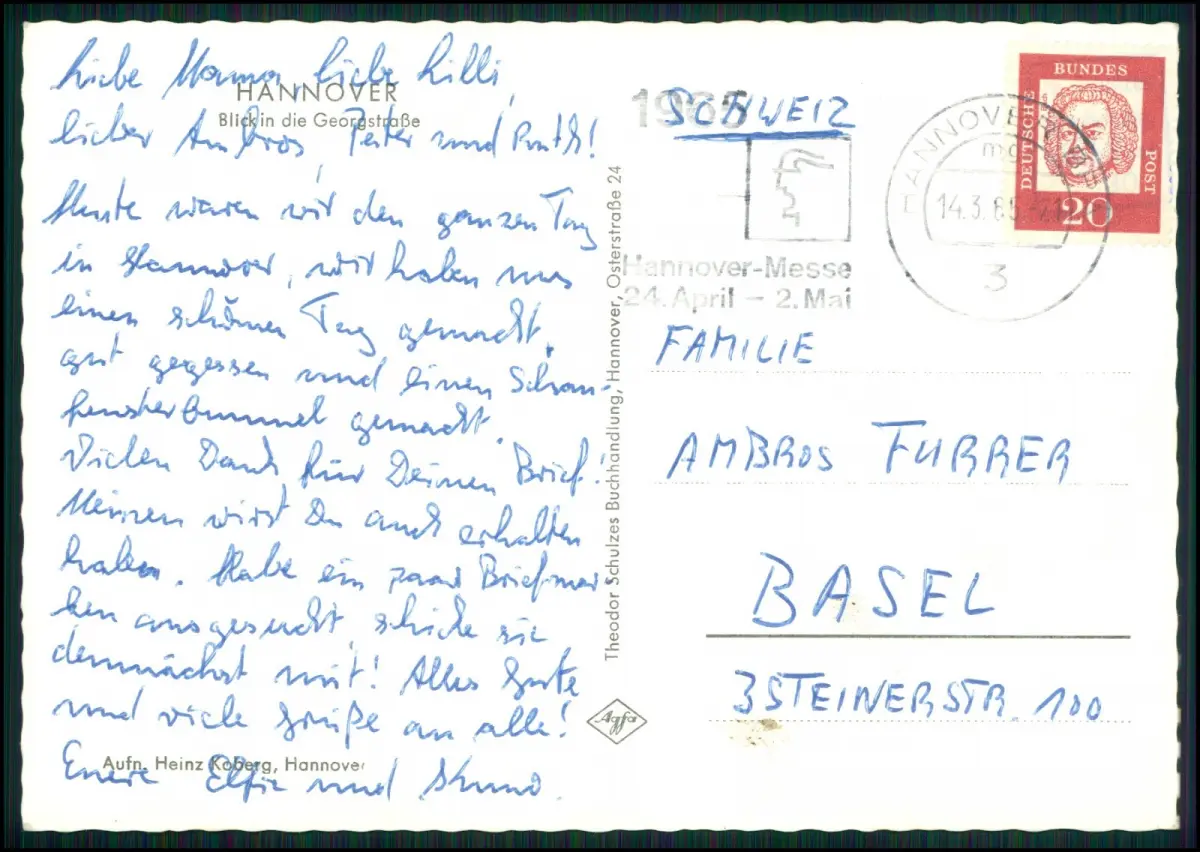 Liebe Mama, liebe Lilli,
HANNOVER
Blick in die Georgstraße
lieber Ambros, Peter und Ruth!
Heute waren wir den ganzen Tag
in Hannover, wir haben uns
einen schönen Tag gemacht,
gut gegessen und einen Schau-
fensterbummel gemacht.
Vielen Dank für Deinen Brief!
Meinen wirst Du auch erhalten
haben. Habe ein paar Briefmar
ken ausgesucht, schicke sie
demnächst mit! Alles Gute
und viele Grüße an alle!
Aufn. Heinz Koberg, Hannover
Eure Elfie und Kuno.
Theodor Schulzes Buchhandlung, Hannover, Osterstraße 24
Agfa
1965
SCHWEIZ
Hannover-Messe
24. April – 2. Mai
HANNOVER
mg
14.3.65
3
DEUTSCHE
BUNDES
POST
20
FAMILIE
AMBROS FURRER
BASEL
3STEINERSTR. 100